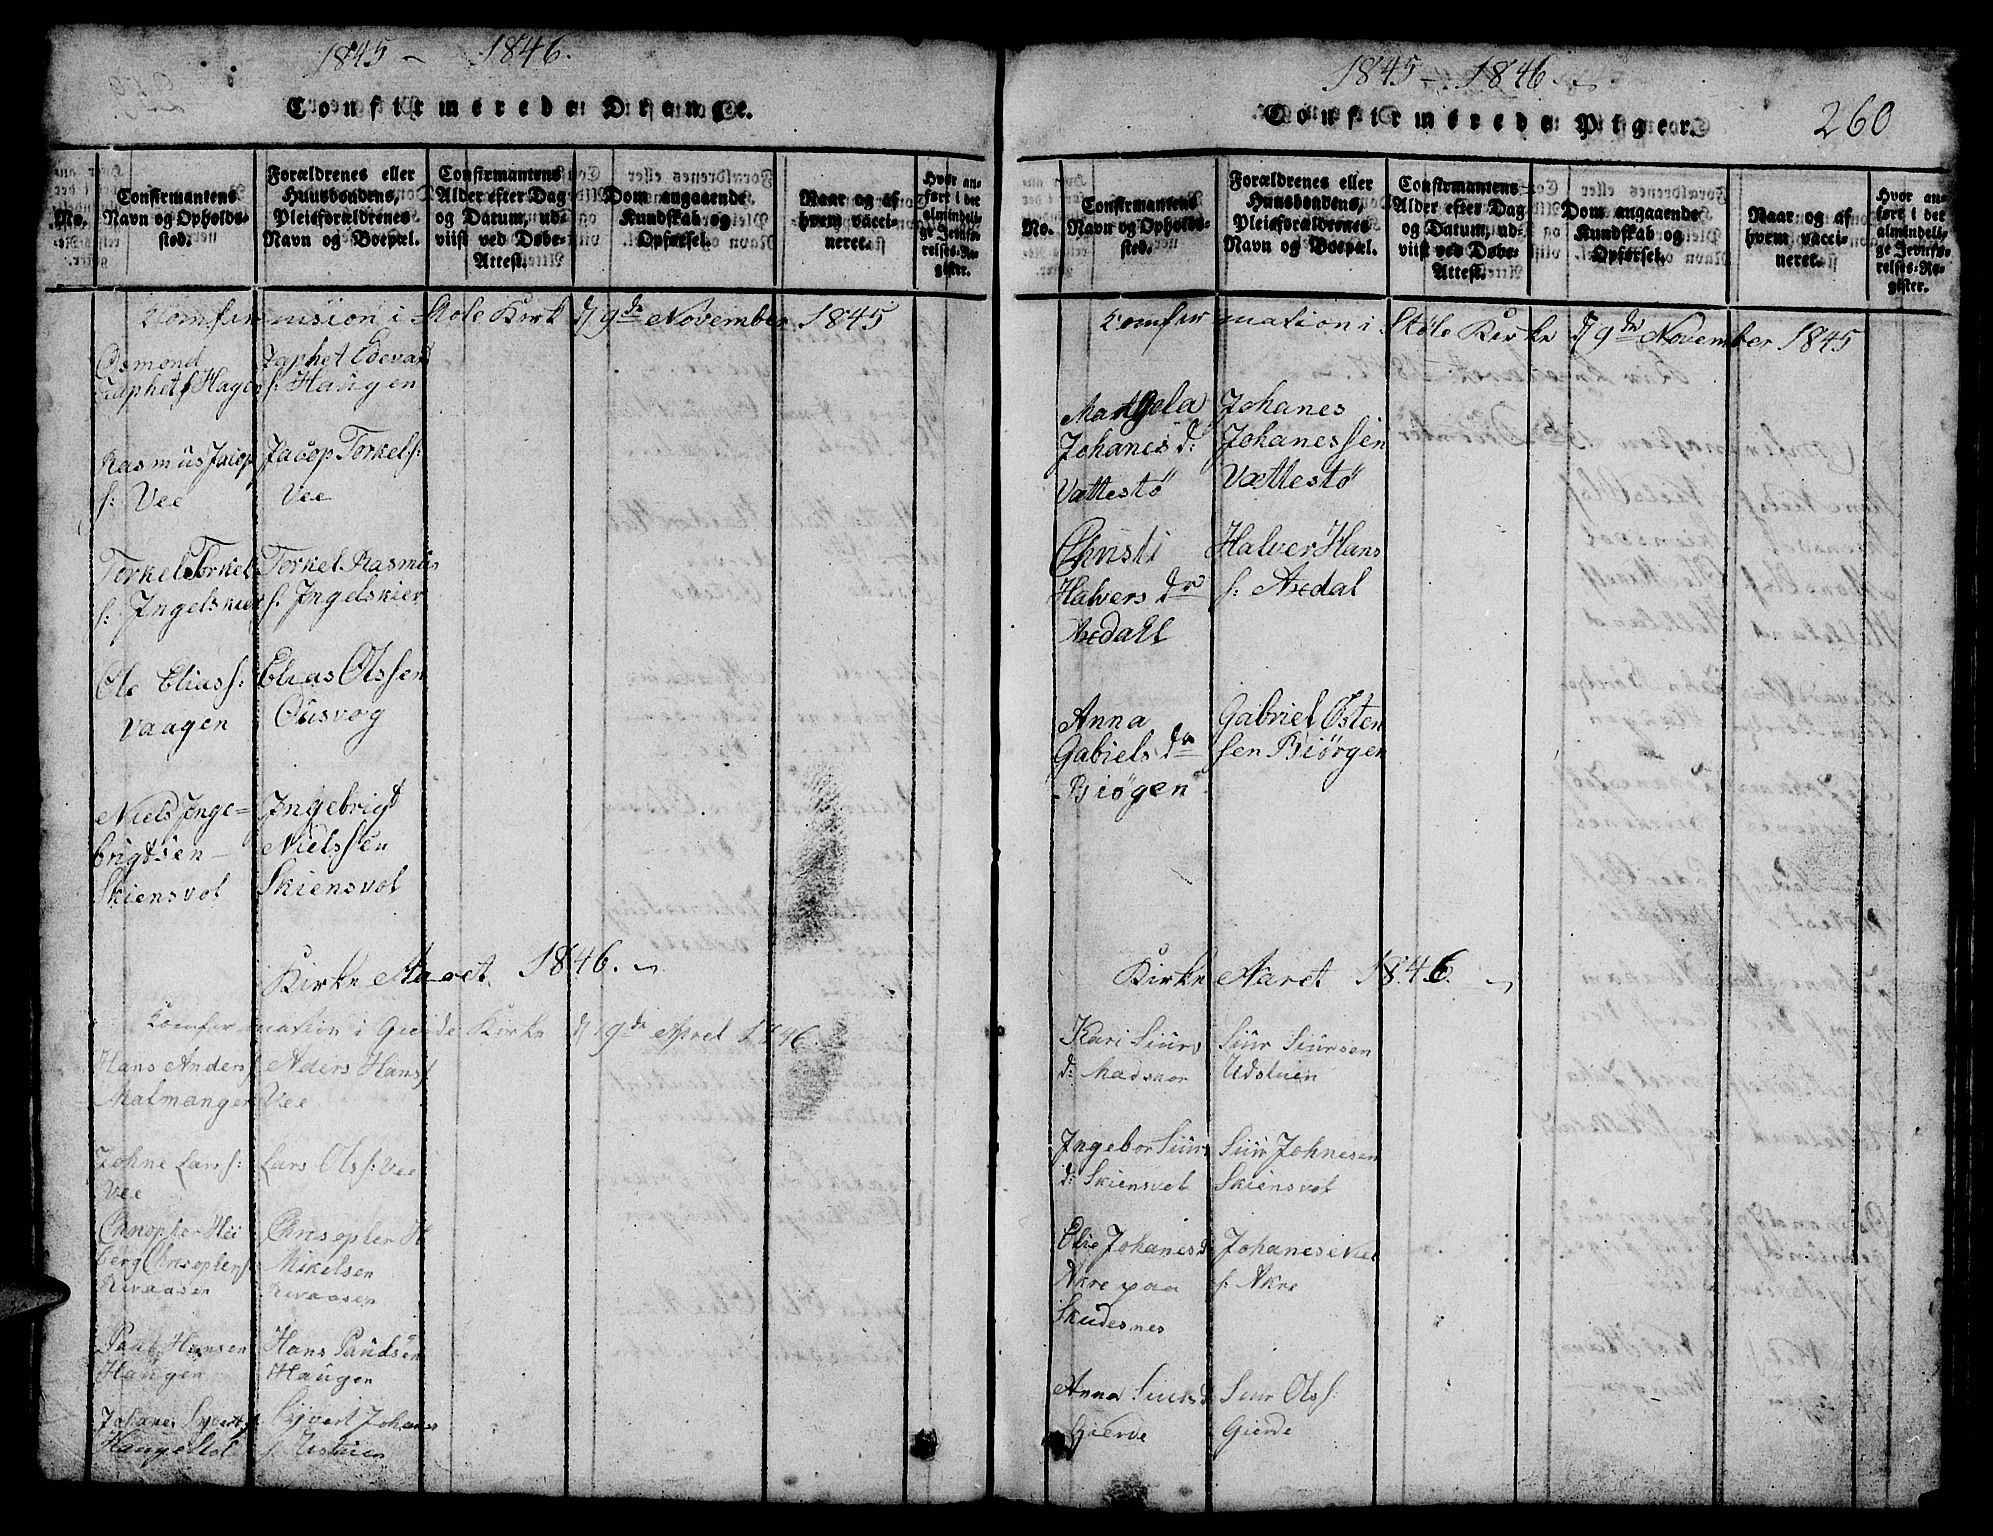 1845 – 1846.
Confirmerede Drenge.
No.
Confirmantens
Navn og Opholds-
sted.
Forældrenes eller
Huusbondens,
Pleieforældrenes
Navn og Boepæl.
Confirmantens
Alder efter Dag
og Datum, ud-
viist ved Døbe-
Attest.
Dom angaaende
Kundskab og
Opførsel.
Naar og af
hvem vacci-
neret.
Hvor an-
ført i det
almindeli-
ge Jevnfø-
relses-Re-
gister.
i Støle Kirk d 9de November 1845
Osmond
Japhets Hagen
Japhet Edevard
s: Haugen
Rasmus Jacop
s: Vee
Jacop Torkels:
Vee
Torkel Torkel
s: Ingelskier
Torkel Rasmus
s: Ingelskier
Ole Eliass:
Vaagen
Elias Olssen
Ousvog
Niels Inge=
brigtsen
Skiensvol
Ingebrigt
Nielssen
Skiensvol
Kirke Aaret 1846.
Komfirmation i Gierde Kirke d 19de Aprel 1846
Hans Anders
Malmanger
Aders Hanss
Vee
Johne Larss:
Vee
Lars Olss: Vee
Chrisopher Hei
berg Chrisophers
Chrisopler H
Mikelsen
Paul Hansen
Haugen
Hans Paudsen
Haugen
Johanes Syverts
Syvert Johans
1845 – 1846.
260
Confirmerede Piger.
No.
Confirmantens
Navn og Opholds-
sted.
Forældrenes eller
Huusbondens,
Pleieforældrenes
Navn og Boepæl.
Confirmantens
Alder efter Dag
og Datum, ud-
viist ved Døbe-
Attest.
Dom angaaende
Kundskab og
Opførsel.
Naar og af
hvem vacci-
neret.
Hvor an-
ført i det
almindeli-
ge Jevnfø-
relses-Re-
gister.
Komfirmation i Støle Kirke d 9de November 1845
Mangela
Johanes d:
Vættestø
Johanes
Johanessen
Vættestø
Christi
Halvers dr
Axdall
Halver Hans
s: Axdal
Anna
Gabiels dr
Biøgen
Gabriel Østen
sen Biørgen
Kirke Aaret 1846.
Kari Siurs
d: Madskor
Siur Siursen
Udstuen
Ingebor Siurs
d: Skiensvol
Siur Johnesen
Skiensvol
Elie Johanes d
Akre paa
Skudesnes
Johanes
s: Akre
Anna Siurs d
Gierde
Siur Olss:
Gierde